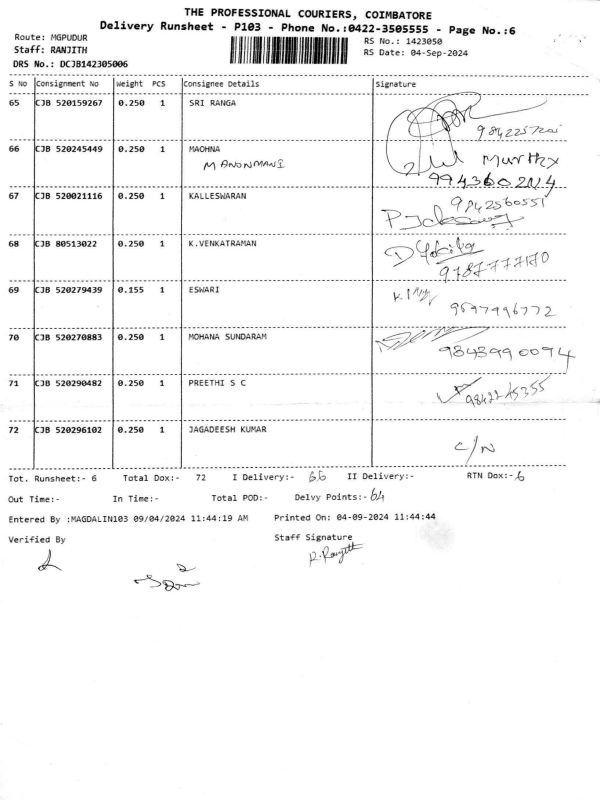 THE PROFESSIONAL COURIERS, COIMBATORE
Delivery Runsheet - P103 - Phone No.:0422-3505555 - Page No.:6
Route: MGPUDUR
RS No.: 1423050
Staff: RANJITH
RS Date: 04-Sep-2024
DRS No.: DCJB142305006
S No Consignment No Weight PCS Consignee Details Signature
65 CJB 520159267 0.250 1 SRI RANGA
66 CJB 520245449 0.250 1 MAOHNA Murthy
MANONMANI
67 CJB 520021116 0.250 1 KALLESWARAN 9842560551
68 CJB 80513022 0.250 1 K.VENKATRAMAN
9787777170
69 CJB 520279439 0.155 1 ESWARI
9597996772
70 CJB 520270883 0.250 1 MOHANA SUNDARAM
9843990094
71 CJB 520290482 0.250 1 PREETHI S C
72 CJB 520296102 0.250 1 JAGADEESH KUMAR
C/N
Tot. Runsheet:- 6 Total Dox:- 72 I Delivery:- 66 II Delivery:- RTN Dox:- 6
Out Time:- In Time:- Total POD:- Delvy Points:- 64
Entered By :MAGDALIN103 09/04/2024 11:44:19 AM Printed On: 04-09-2024 11:44:44
Verified By Staff Signature
R. Ranjith